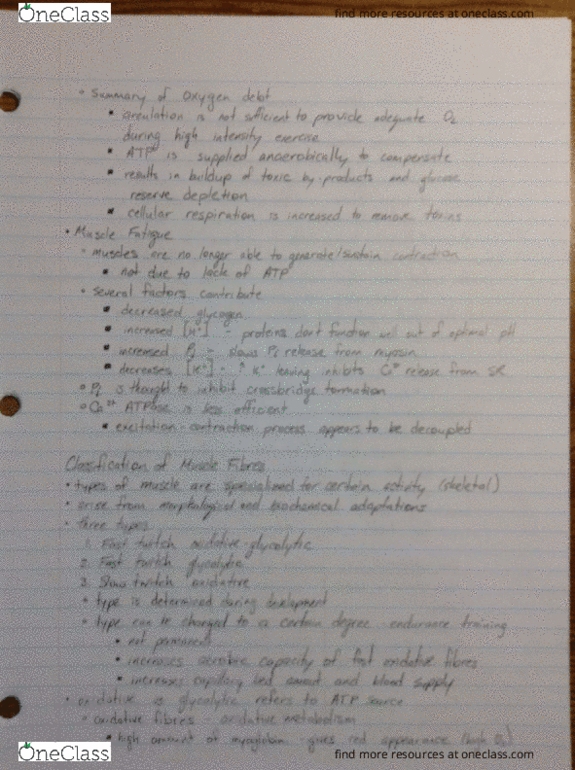 OneClass
find more resources at oneclass.com
◦ Summary of oxygen debt
▪ circulation is not sufficient to provide adequate O₂
during high intensity exercise
▪ ATP is supplied anaerobically to compensate
▪ results in buildup of toxic by products and glucose
reserve depletion
▪ cellular respiration is increased to remove toxins
• Muscle Fatigue
◦ muscles are no longer able to generate/sustain contraction
▪ not due to lack of ATP
◦ several factors contribute
▪ decreased glycogen
▪ increased [H⁺] - proteins don't function well out of optimal pH
▪ increased Pi - slows Pi release from myosin
▪ decreases [K⁺] - ↑ K⁺ leaving inhibits release from SR
◦ Pi is thought to inhibit crossbridge formation
◦ Ca²⁺ ATPase is less efficient
▪ excitation-contraction process appears to be decoupled
Classification of Muscle Fibres
• types of muscle are specialized for certain activity (skeletal)
• arise from morphological and biochemical adaptations
• three types
1. Fast twitch oxidative-glycolytic
2. Fast twitch glycolytic
3. Slow twitch oxidative
◦ type is determined during development
◦ type can be changed to a certain degree - endurance training
▪ not permanent
▪ increases aerobic capacity of fast oxidative fibres
▪ increases capillary bed amount and blood supply
• oxidative vs glycolytic refers to ATP source
◦ oxidative fibres - oxidative metabolism
▪ high amount of myoglobin - gives red appearance (high O₂)
OneClass
find more resources at oneclass.com